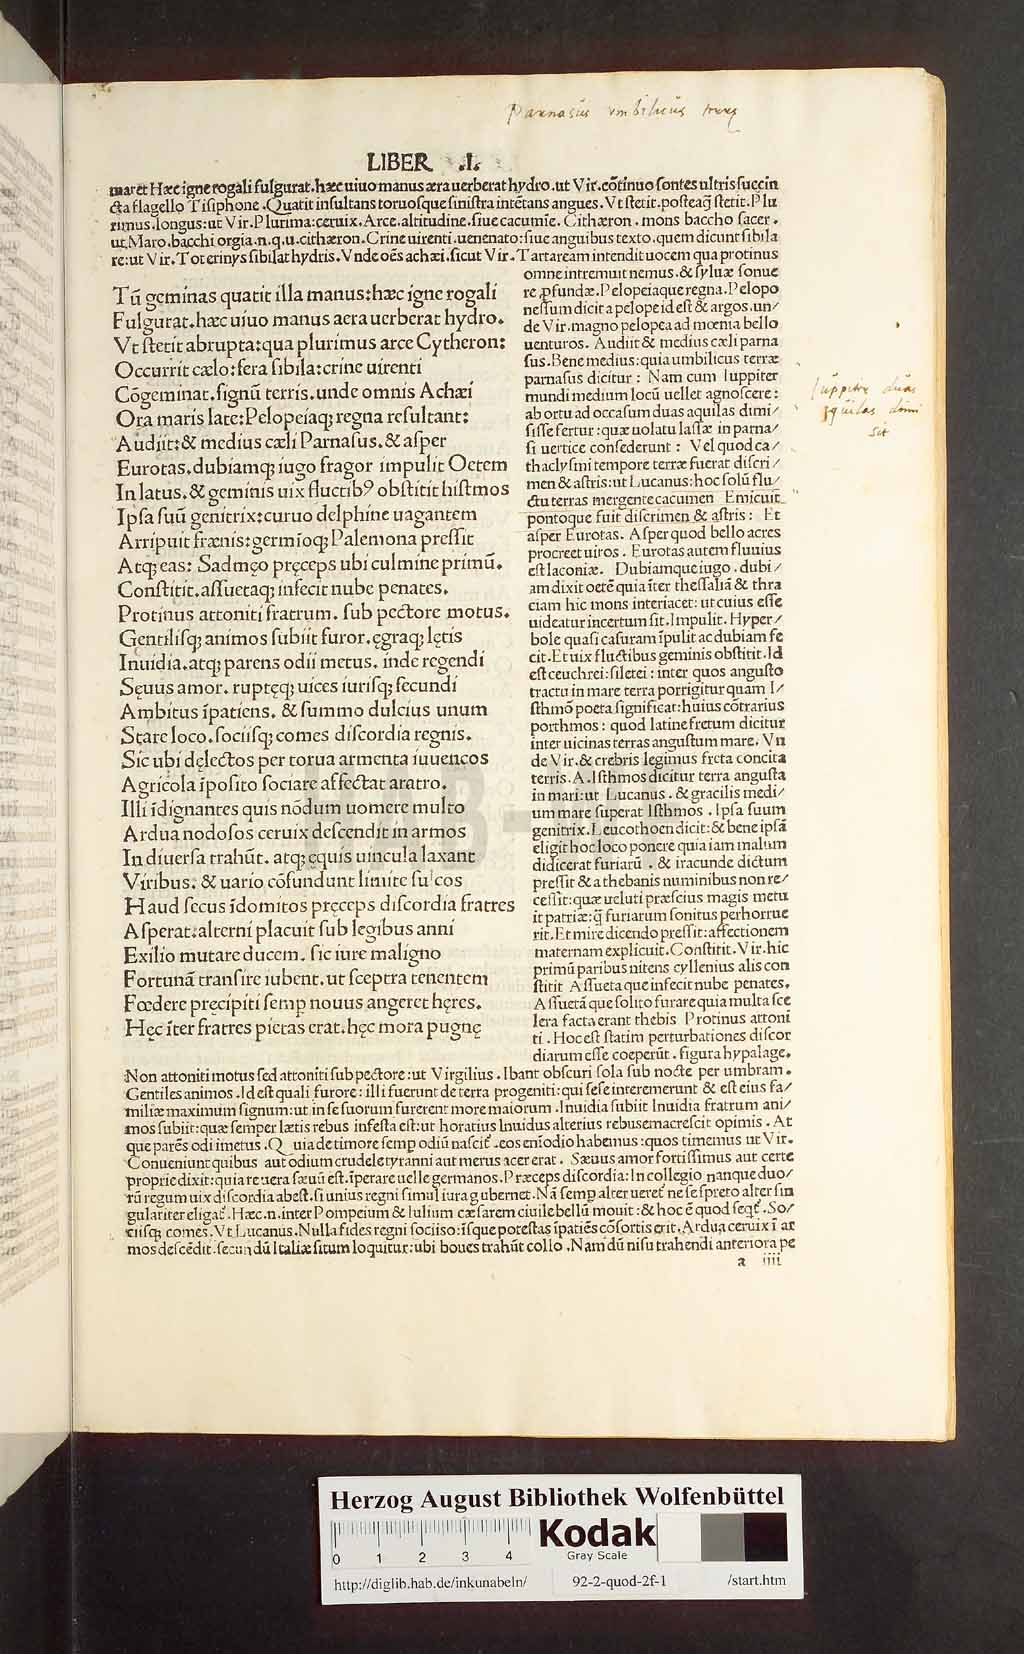 Parnasus vmbilicus terrę
LIBER .I.
maret Hæc igne rogali fulgurat.hæc uiuo manus æra uerberat hydro.ut Vir.cōtinuo sontes ultrix succin
cta flagello Tisiphone.Quatit insultans toruosque sinistra intētans angues.Vt stetit.posteaq̃ stetit.Plu
rimus.longus:ut Vir.Plurima:ceruix.Arce.altitudine.siue cacumīe.Cithæron.mons baccho sacer.
ut.Maro.bacchi orgia.n.q.u.cithæron.Crine uirenti.uenenato:siue anguibus texto.quem dicunt sibila
re:ut Vir.Tot erinys sibilat hydris.Vnde oēs achæi.sicut Vir.Tartaream intendit uocem qua protinus
Tū geminas quatit illa manus:hæc igne rogali
Fulgurat.hæc uiuo manus aera uerberat hydro.
Vt stetit abrupta:qua plurimus arce Cytheron:
Occurrit cælo:fera sibila:crine uirenti
Cōgeminat.signū terris.unde omnis Achæi
Ora maris late:Pelopeiaq; regna resultant:
Audiit:& medius cæli Parnasus.& asper
Eurotas.dubiamq; iugo fragor impulit Oetem
In latus.& geminis uix fluctibꝰ obstitit histmos
Ipsa suū genitrix:curuo delphine uagantem
Arripuit frænis:germioq; Palemona pressit
Atq; eas: Sadmęo pręceps ubi culmine primū.
Constitit.assuetaq; infecit nube penates.
Protinus attoniti fratrum. sub pectore motus.
Gentilisq; animos subiit furor.ęgraq; lętis
Inuidia.atq; parens odii metus. inde regendi
Sęuus amor. ruptęq; uices iurisq; secundi
Ambitus īpatiens. & summo dulcius unum
Stare loco.sociisq; comes discordia regnis.
Sic ubi dęlectos per torua armenta iuuencos
Agricola īposito sociare affectat aratro.
Illi īdignantes quis nōdum uomere multo
Ardua nodosos ceruix descendit in armos
In diuersa trahūt. atq; ęquis uincula laxant
Viribus. & uario cōfundunt limite sulcos
Haud secus īdomitos pręceps discordia fratres
Asperat.alterni placuit sub legibus anni
Exilio mutare ducem. sic iure maligno
Fortunā transire iubent.ut sceptra tenentem
Fœdere pręcipiti semp nouus angeret hęres.
Hęc īter fratres pietas erat.hęc mora pugnę
omne intremuit nemus.& syluæ sonue
re ꝓfundæ.Pelopeiaque regna.Pelopo
nessum dicit a pelope id est & argos.un/
de Vir.magno pelopea ad mœnia bello
uenturos. Audiit & medius cæli parna
sus.Bene medius:quia umbilicus terræ
parnasus dicitur: Nam cum Iuppiter
mundi medium locū uellet agnoscere:
ab ortu ad occasum duas aquilas dimi/
sisse fertur:quæ uolatu lassæ in parna/
si uertice consederunt: Vel quod ca/
thaclysmi tempore terræ fuerat discri/
men & astris:ut Lucanus:hoc solū flu/
ctu terras mergente cacumen Emicuit
pontoque fuit discrimen & astris: Et
asper Eurotas. Asper quod bello acres
procreet uiros. Eurotas autem fluuius
est laconiæ. Dubiamque iugo.dubi/
am dixit oetē quia īter thessaliā & thra
ciam hic mons interiacet:ut cuius esse
uideatur incertum sit.Impulit.Hyper/
bole quasi casuram īpulit ac dubiam fe
cit.Et uix fluctibus geminis obstitit.Id
est ceuchrei:siletei:inter quos angusto
tractu in mare terra porrigitur quam I/
sthmō poeta significat:huius cōtrarius
porthmos: quod latine fretum dicitur
inter uicinas terras angustum mare. Vn
de Vir.& crebris legimus freta concita
terris.A.Isthmos dicitur terra angusta
in mari:ut Lucanus.& gracilis medi/
um mare superat Isthmos.Ipsa suum
genitrix.Leucothoen dicit:& bene ipsā
eligit hoc loco ponere quia iam malum
didicerat furiarū.& iracunde dictum
pressit & a thebanis numinibus non re/
cessit:quæ ueluti præscius magis metu
it patriæ:q̄ furiarum sonitus perhorrue
rit.Et mire dicendo pressit:affectionem
maternam explicuit.Constitit.Vir.hic
primū paribus nitens cyllenius alis con
stitit Assueta que infecit nube penates.
Assuetā que solito furare quia multa sce
lera facta erant thebis Protinus attoni
ti.Hoc est statim perturbationes discor
diarum esse coeperūt.figura hypalage.
Iuppiter duas
aquilas dimi
sit
Non attoniti motus sed attoniti sub pectore:ut Virgilius.Ibant obscuri sola sub nocte per umbram.
Gentiles animos.Id est quali furore:illi fuerunt de terra progeniti:qui sese interemerunt & est eius fa/
miliæ maximum signum:ut in se suorum furerent more maiorum.Inuidia subiit Inuidia fratrum ani/
mos subiit:quæ semper lætis rebus infesta est:ut horatius Inuidus alterius rebus emacrescit opimis.At
que parēs odi imetus.Quia de timore semp odiū nascit᷑.eos enī odio habemus:quos timemus ut Vir.
Conueniunt quibus aut odium crudele tyranni aut metus acer erat. Sæuus amor fortissimus aut certe
proprie dixit:quia re uera sæuū est.īperare uelle germanos.Præceps discordia:In collegio nanque duo/
rū regum uix discordia abest.si unius regni simul iura gubernet.Nā semp alter ueret᷑ ne se spreto alter sin
gulariter eligat᷑.Hæc.n.inter Pompeium & Iulium cæsarem ciuile bellū mouit:& hoc ē quod seqt᷑.So/
ciisq; comes.Vt Lucanus.Nulla fides regni sociiso:īsque potestas īpatiēs cōsortis erit.Ardua ceruix ī ar
mos descēdit.secundū Italiæ situm loquitur:ubi boues trahūt collo.Nam dū nisu trahendi anteriora pe
a iiii
HAB-W
Herzog August Bibliothek Wolfenbüttel
0 1 2 3 4
Kodak
Gray Scale
http://diglib.hab.de/inkunabeln/ 92-2-quod-2f-1 /start.htm